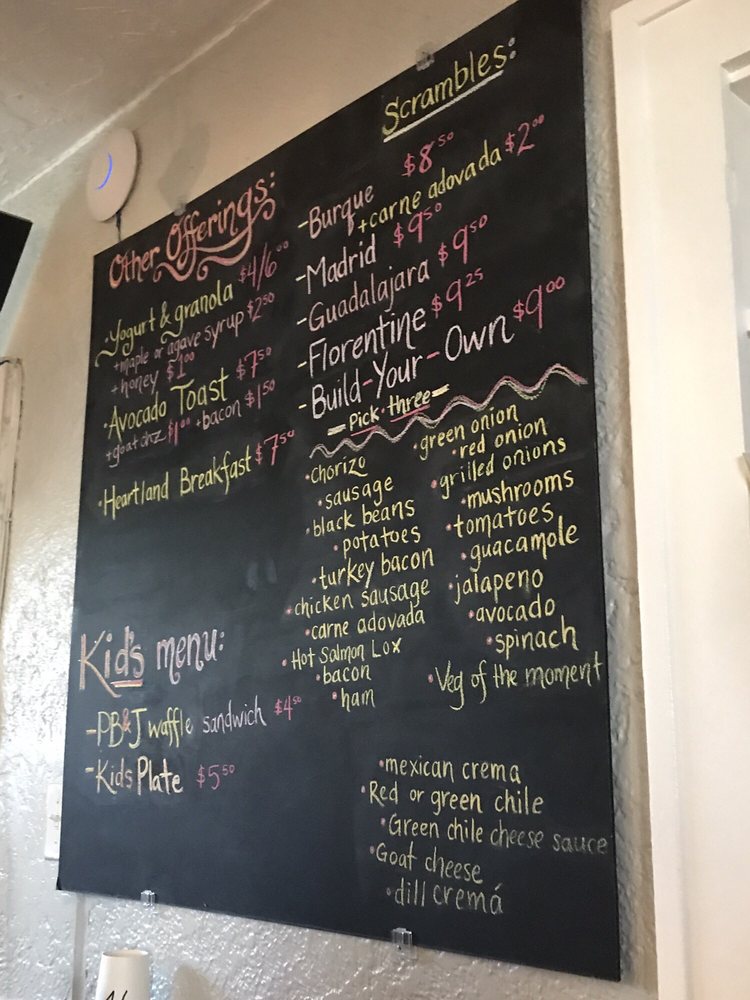 Other Offerings:
•Yogurt & granola $4/6⁰⁰
+maple or agave syrup $2⁵⁰
+honey $1⁰⁰
•Avocado Toast $7⁵⁰
+goat chz $1⁰⁰ +bacon $1⁵⁰
•Heartland Breakfast $7⁵⁰
Kid's menu:
-PB&J waffle sandwich $4⁵⁰
-Kids Plate $5⁵⁰
Scrambles:
-Burque $8⁵⁰
+carne adovada $2⁰⁰
-Madrid $9⁵⁰
-Guadalajara $9⁵⁰
-Florentine $9²⁵
-Build-Your-Own $9⁰⁰
-Pick three-
•chorizo
•sausage
•black beans
•potatoes
•turkey bacon
•chicken sausage
•carne adovada
•Hot Salmon Lox
•bacon
•ham
•green onion
•red onion
•grilled onions
•mushrooms
•tomatoes
•guacamole
•jalapeno
•avocado
•spinach
•Veg of the moment
•mexican crema
•Red or green chile
•Green chile cheese sauce
•Goat cheese
•dill cremá